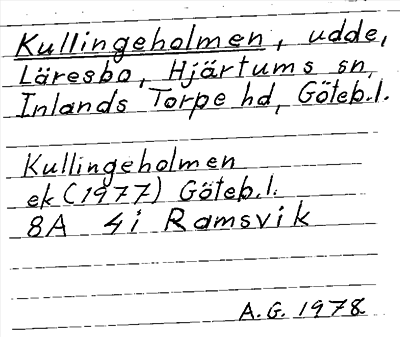 Kullingeholmen, udde,
Läresbo, Hjärtums sn,
Inlands Torpe hd, Göteb.l.
Kullingeholmen
ek (1977) Göteb.l.
8A 4i Ramsvik
A.G. 1978